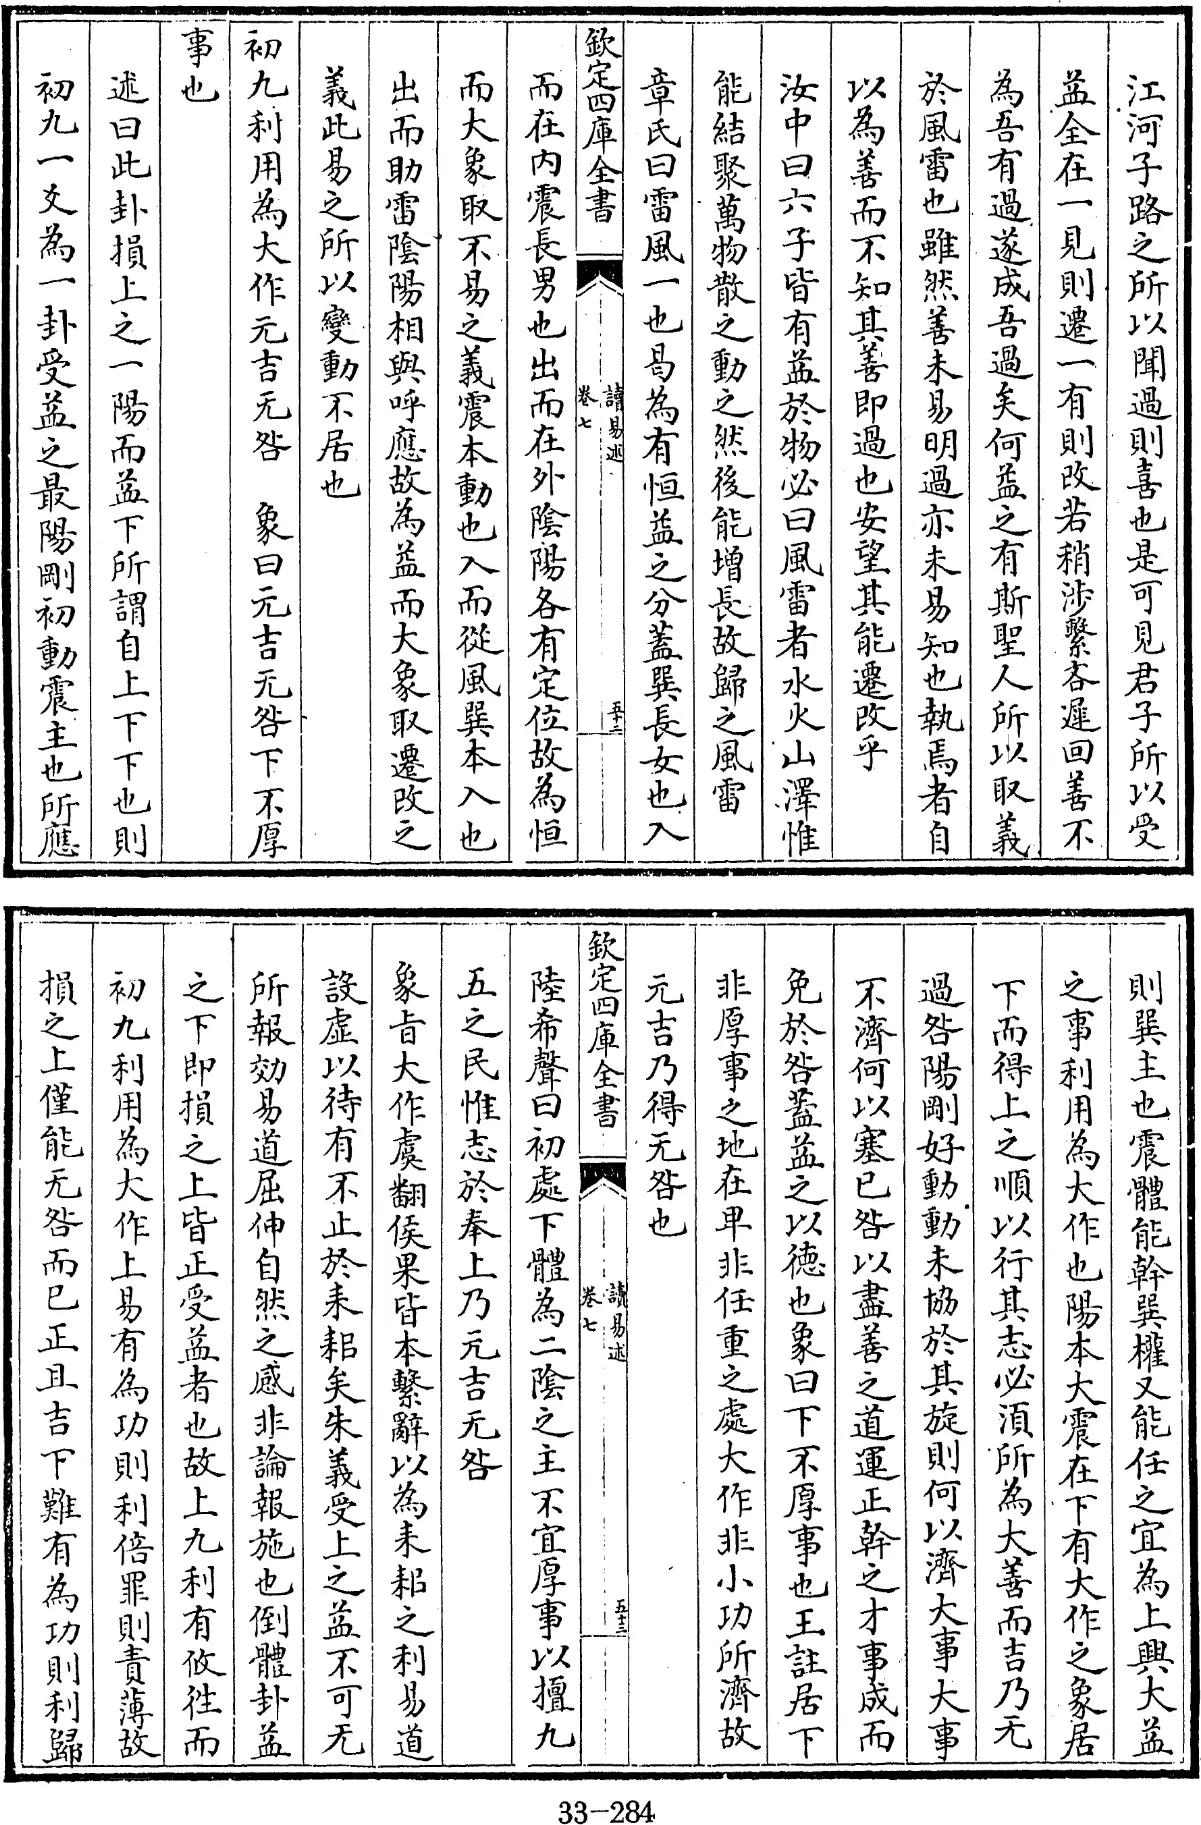 江河子路之所以聞過則喜也是可見君子所以受
益全在一見則遷一有則改若稍涉繫吝遲回善不
為吾有過遂成吾過矣何益之有斯聖人所以取義
於風雷也雖然善未易明過亦未易知也執焉者自
以為善而不知其善即過也安望其能遷改乎
汝中曰六子皆有益於物必曰風雷者水火山澤惟
能結聚萬物散之動之然後能增長故歸之風雷
章氏曰雷風一也曷為有恒益之分蓋巽長女也入
欽定四庫全書
讀易述
卷七
五十二
而在内震長男也出而在外陰陽各有定位故為恒
而大象取不易之義震本動也入而從風巽本入也
出而助雷陰陽相與呼應故為益而大象取遷改之
義此易之所以變動不居也
初九利用為大作元吉无咎　象曰元吉无咎下不厚
事也
述曰此卦損上之一陽而益下所謂自上下下也則
初九一爻為一卦受益之最陽剛初動震主也所應
則巽主也震體能幹巽權又能任之宜為上興大益
之事利用為大作也陽本大震在下有大作之象居
下而得上之順以行其志必湏所為大善而吉乃无
過咎陽剛好動動未協於其旋則何以濟大事大事
不濟何以塞已咎以盡善之道運正幹之才事成而
免於咎蓋益之以德也象曰下不厚事也王註居下
非厚事之地在卑非任重之處大作非小功所濟故
元吉乃得无咎也
欽定四庫全書
讀易述
卷七
五十三
陸希聲曰初處下體為二陰之主不宜厚事以擅九
五之民惟志於奉上乃元吉无咎
象旨大作虞翻侯果皆本繫辭以為耒耜之利易道
設虛以待有不止於耒耜矣朱義受上之益不可无
所報効易道屈伸自然之感非論報施也倒體卦益
之下即損之上皆正受益者也故上九利有攸徃而
初九利用為大作上易有為功則利倍罪則責薄故
損之上僅能无咎而已正且吉下難有為功則利歸
33-284